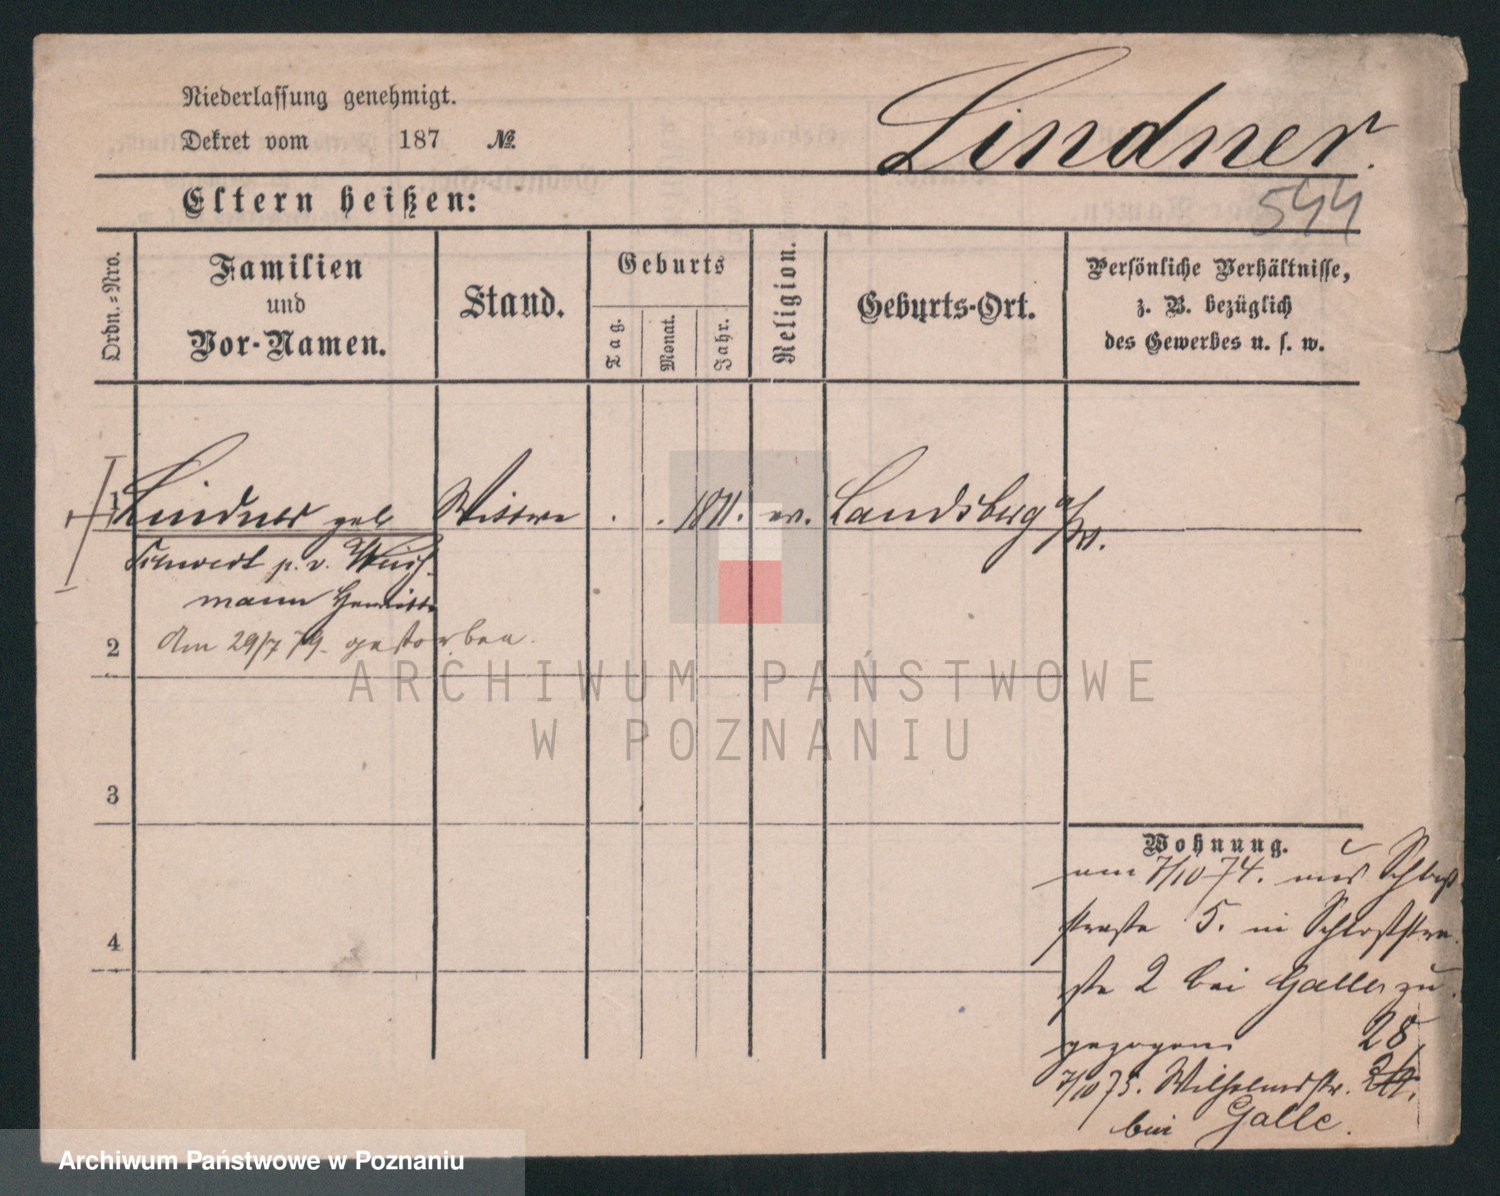 Niederlassung genehmigt.
Dekret vom 187 №
Lindner.
544
Eltern heißen:
Ordn.-Nro.
Familien
und
Vor-Namen.
Stand.
Geburts
Tag.
Monat.
Jahr.
Religion.
Geburts-Ort.
Persönliche Verhältnisse,
z. B. bezüglich
des Gewerbes u. s. w.
1 Lindner geb Wittwe . . 1811. ev. Landsberg a/W.
mann Henriette
2 Am 29/7 79. gestorben.
3
4
Wohnung.
am 7/10 74. aus Schloß
straße 5. in Schloßstra
ße 2 bei Galle zu
gezogen.
7/10 75. Wilhelmstr. 28
bei Galle.
ARCHIWUM PAŃSTWOWE
W POZNANIU
Archiwum Państwowe w Poznaniu